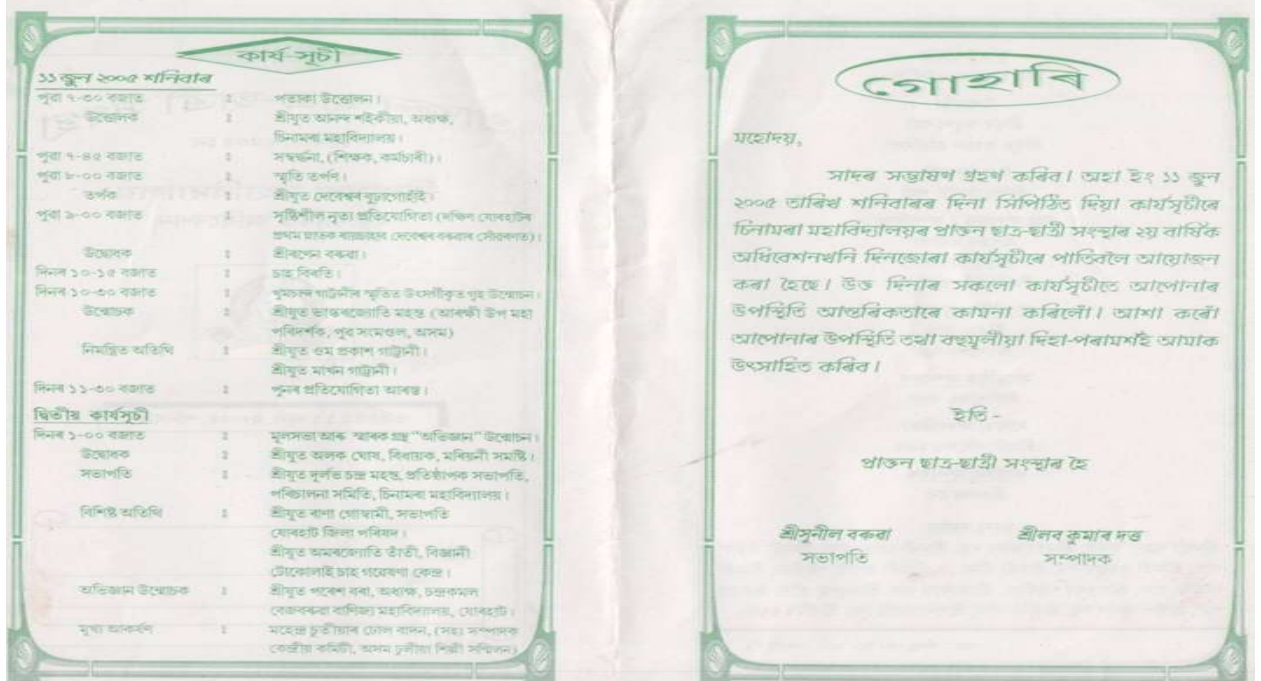 কাৰ্য-সূচী
১১ জুন ২০০৫ শনিবাৰ
পুৱা ৭-৩০ বজাত ঃ পতাকা উত্তোলন।
উত্তোলক ঃ শ্ৰীযুত আনন্দ শইকীয়া, অধ্যক্ষ,
চিনামৰা মহাবিদ্যালয়।
পুৱা ৭-৪৫ বজাত ঃ সম্বৰ্দ্ধনা, (শিক্ষক, কৰ্মচাৰী)।
পুৱা ৮-০০ বজাত ঃ স্মৃতি তৰ্পণ।
তৰ্পক ঃ শ্ৰীযুত দেবেশ্বৰ বুঢ়াগোহাঁই।
পুৱা ৯-০০ বজাত ঃ সৃষ্টিশীল নৃত্য প্ৰতিযোগিতা (দক্ষিণ যোৰহাটৰ
প্ৰথম স্নাতক ৰায়চাহাব দেবেশ্বৰ বৰুৱাৰ সোঁৱৰণত)।
উদ্বোধক ঃ শ্ৰীৰূপেন বৰুৱা।
দিনৰ ১০-১৫ বজাত ঃ চাহ বিৰতি।
দিনৰ ১০-৩০ বজাত ঃ গাট্টানীৰ স্মৃতিত উৎসৰ্গীকৃত গৃহ উন্মোচন।
উন্মোচক ঃ শ্ৰীযুত ভাস্কৰজ্যোতি মহন্ত (আৰক্ষী উপ মহা
পৰিদৰ্শক, পূব সংমণ্ডল, অসম)
নিমন্ত্ৰিত অতিথি ঃ শ্ৰীযুত ওম প্ৰকাশ গাট্টানী।
শ্ৰীযুত মাখন গাট্টানী।
দিনৰ ১১-৩০ বজাত ঃ পুনৰ প্ৰতিযোগিতা আৰম্ভ।
দ্বিতীয় কাৰ্যসূচী
দিনৰ ১-০০ বজাত ঃ মূলসভা আৰু স্মাৰক গ্ৰন্থ "অভিজ্ঞান" উন্মোচন।
উদ্বোধক ঃ শ্ৰীযুত অলক ঘোষ, বিধায়ক, মৰিয়নী সমষ্টি।
সভাপতি ঃ শ্ৰীযুত দূৰ্লভ চন্দ্ৰ মহন্ত, প্ৰতিষ্ঠাপক সভাপতি,
পৰিচালনা সমিতি, চিনামৰা মহাবিদ্যালয়।
বিশিষ্ট অতিথি ঃ শ্ৰীযুত ৰাণা গোস্বামী, সভাপতি
যোৰহাট জিলা পৰিষদ।
শ্ৰীযুত অমৰজ্যোতি তাঁতী, বিজ্ঞানী
টোকোলাই চাহ গৱেষণা কেন্দ্ৰ।
অভিজ্ঞান উন্মোচক ঃ শ্ৰীযুত পৰেশ বৰা, অধ্যক্ষ, চন্দ্ৰকমল
বেজবৰুৱা বাণিজ্য মহাবিদ্যালয়, যোৰহাট।
মুখ্য আকৰ্ষণ ঃ মহেন্দ্ৰ চুতীয়াৰ ঢোল বাদন, (সহঃ সম্পাদক
কেন্দ্ৰীয় কমিটী, অসম ঢুলীয়া শিল্পী সন্মিলন)
গোহাৰি
মহোদয়,
সাদৰ সম্ভাষণ গ্ৰহণ কৰিব। অহা ইং ১১ জুন
২০০৫ তাৰিখ শনিবাৰৰ দিনা সিপিঠিত দিয়া কাৰ্যসূচীৰে
চিনামৰা মহাবিদ্যালয়ৰ প্ৰাক্তন ছাত্ৰ-ছাত্ৰী সংস্থাৰ ২য় বাৰ্ষিক
অধিবেশনখনি দিনজোৰা কাৰ্যসূচীৰে পাতিবলৈ আয়োজন
কৰা হৈছে। উক্ত দিনাৰ সকলো কাৰ্যসূচীতে আপোনাৰ
উপস্থিতি আন্তৰিকতাৰে কামনা কৰিলোঁ। আশা কৰোঁ
আপোনাৰ উপস্থিতি তথা বহুমূলীয়া দিহা-পৰামৰ্শই আমাক
উৎসাহিত কৰিব।
ইতি -
প্ৰাক্তন ছাত্ৰ-ছাত্ৰী সংস্থাৰ হৈ
শ্ৰীসুনীল বৰুৱা শ্ৰীলব কুমাৰ দত্ত
সভাপতি সম্পাদক